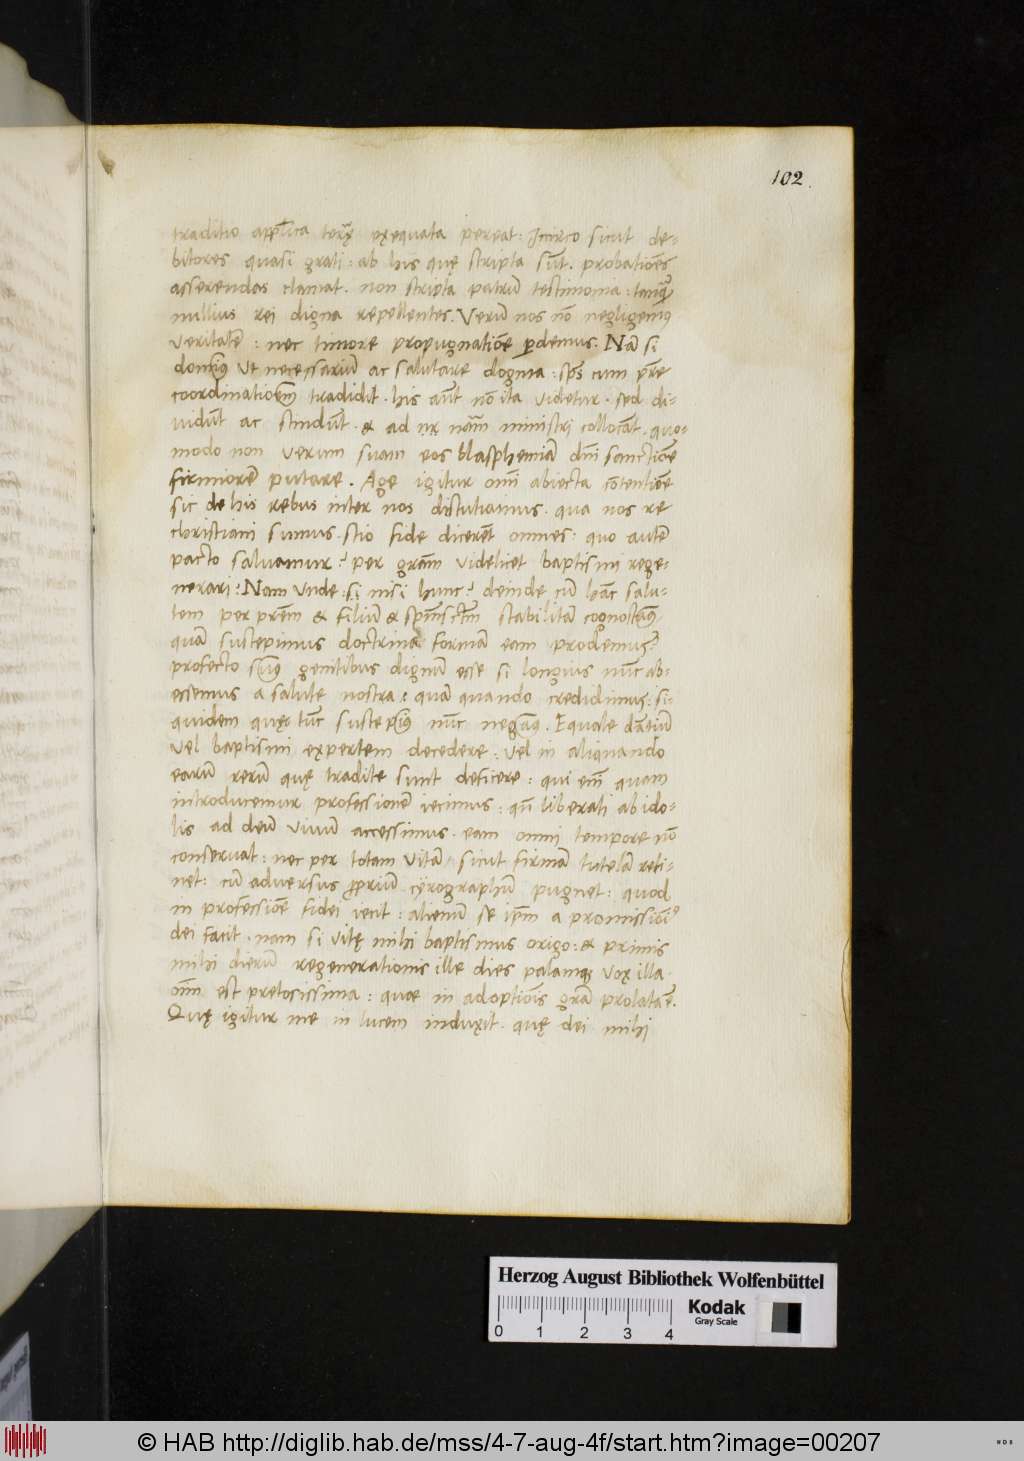 102
traditio appl̄ica terrȩ exequata pereat: Iccirco sicut de-
bitores quasi grati: ab his quę scripta sūt. probationēs
asserendas clamat. non scripta patrum testimonia: tanquā
nullius rei digna repellentes. Verū nos nō negligemus
veritatē: nec timore propugnationē ꝑdemus. Nā si
dominus ut necessariū ac salutare dogma: sp̄s cum pr̄e
coordinationem tradidit. his aūt nō ita videtur. sed di-
vidūt ac scindūt. & ad nr̄ nām ministri collocāt. quo-
modo non verum suam eos blasphemiā dn̄i sanctione
firmiorē putare. Age igitur omī abiecta cōtentiōe
sic de his rebus inter nos discutiamus. qua nos re
christiani sumus. scio fide dicerēt omnes: quo autē
pacto salvamur? per grām videlicet baptismi rege-
nerari? Nam unde. si nisi hunc? deinde cū hāc salu-
tem per prēm & filiū & spm̄ sctm̄ stabilitā cognoscamus
quā suscepimus doctrinae formā eam prodemus?
profecto gemitibus dignū esse si longius nūc ab-
essemus a salute nostra: quā quando credidimus: si-
quidem quęe tūc suscepimus nūc negamus. Equale dāniū
vel baptismi expertem decedere. vel in aliquando
earū rerū quę tradite sunt deficere: qui em̄ quam
introducemur professionē iecimus: qn̄ liberati ab ido-
lis ad deū vivū accessimus. eam omni tempore nō
conservat: nec per totam vitā sicut firmā tutelā reti-
net: cū adversus ꝓpriū cyrographū pugnet: quod
in professiōe fidei iecit: alienū se ip̄m a promissioī⁹
dei facit. nam si vitę mihi baptismus origo: & primis
mihi dierū regenerationis ille dies palamque vox illa
om̄ est pretosissima: quae in adoptiōis grā prolata ē.
Quę igitur me in lucem induxit. quę dei mihi
Herzog August Bibliothek Wolfenbüttel
Kodak
Gray Scale
0 1 2 3 4
© HAB http://diglib.hab.de/mss/4-7-aug-4f/start.htm?image=00207